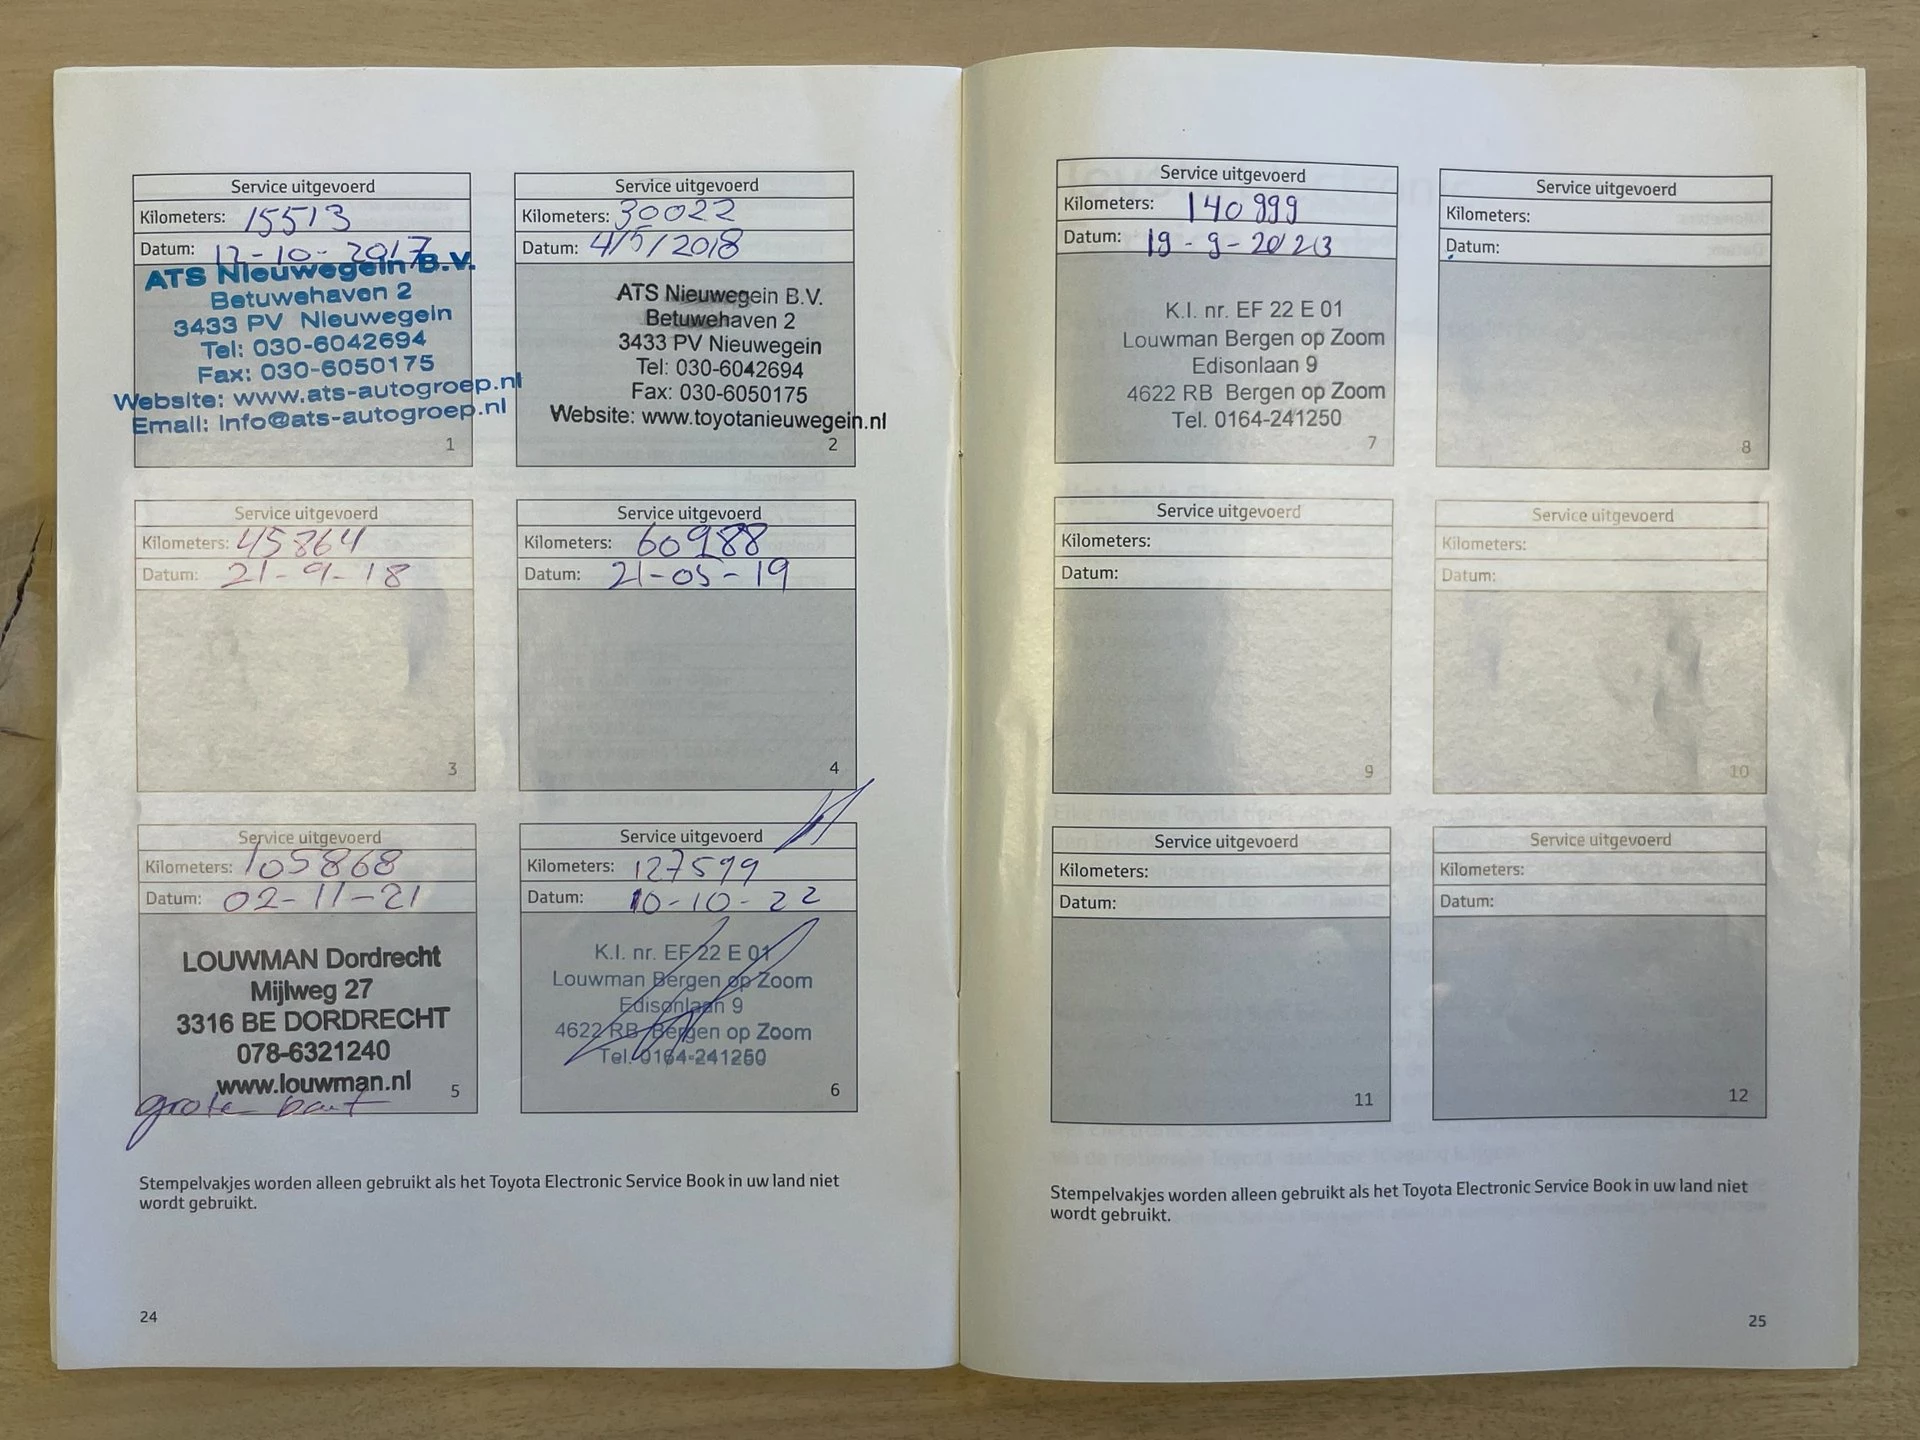 Service uitgevoerd
Kilometers: 15513
Datum: 12-10-2017
ATS Nieuwegein B.V.
Betuwehaven 2
3433 PV Nieuwegein
Tel: 030-6042694
Fax: 030-6050175
Website: www.ats-autogroep.nl
Email: info@ats-autogroep.nl
1
Service uitgevoerd
Kilometers: 30022
Datum: 4/5/2018
ATS Nieuwegein B.V.
Betuwehaven 2
3433 PV Nieuwegein
Tel: 030-6042694
Fax: 030-6050175
Website: www.toyotanieuwegein.nl
2
Service uitgevoerd
Kilometers: 45864
Datum: 21-9-18
3
Service uitgevoerd
Kilometers: 60988
Datum: 21-05-19
4
Service uitgevoerd
Kilometers: 105868
Datum: 02-11-21
LOUWMAN Dordrecht
Mijlweg 27
3316 BE DORDRECHT
078-6321240
www.louwman.nl
5
grote beurt
Service uitgevoerd
Kilometers: 127599
Datum: 10-10-22
K.I. nr. EF 22 E 01
Louwman Bergen op Zoom
Edisonlaan 9
4622 RB Bergen op Zoom
Tel. 0164-241250
6
Stempelvakjes worden alleen gebruikt als het Toyota Electronic Service Book in uw land niet
wordt gebruikt.
24
Service uitgevoerd
Kilometers: 140999
Datum: 19-9-2023
K.I. nr. EF 22 E 01
Louwman Bergen op Zoom
Edisonlaan 9
4622 RB Bergen op Zoom
Tel. 0164-241250
7
Service uitgevoerd
Kilometers:
Datum:
8
Service uitgevoerd
Kilometers:
Datum:
9
Service uitgevoerd
Kilometers:
Datum:
10
Service uitgevoerd
Kilometers:
Datum:
11
Service uitgevoerd
Kilometers:
Datum:
12
Stempelvakjes worden alleen gebruikt als het Toyota Electronic Service Book in uw land niet
wordt gebruikt.
25